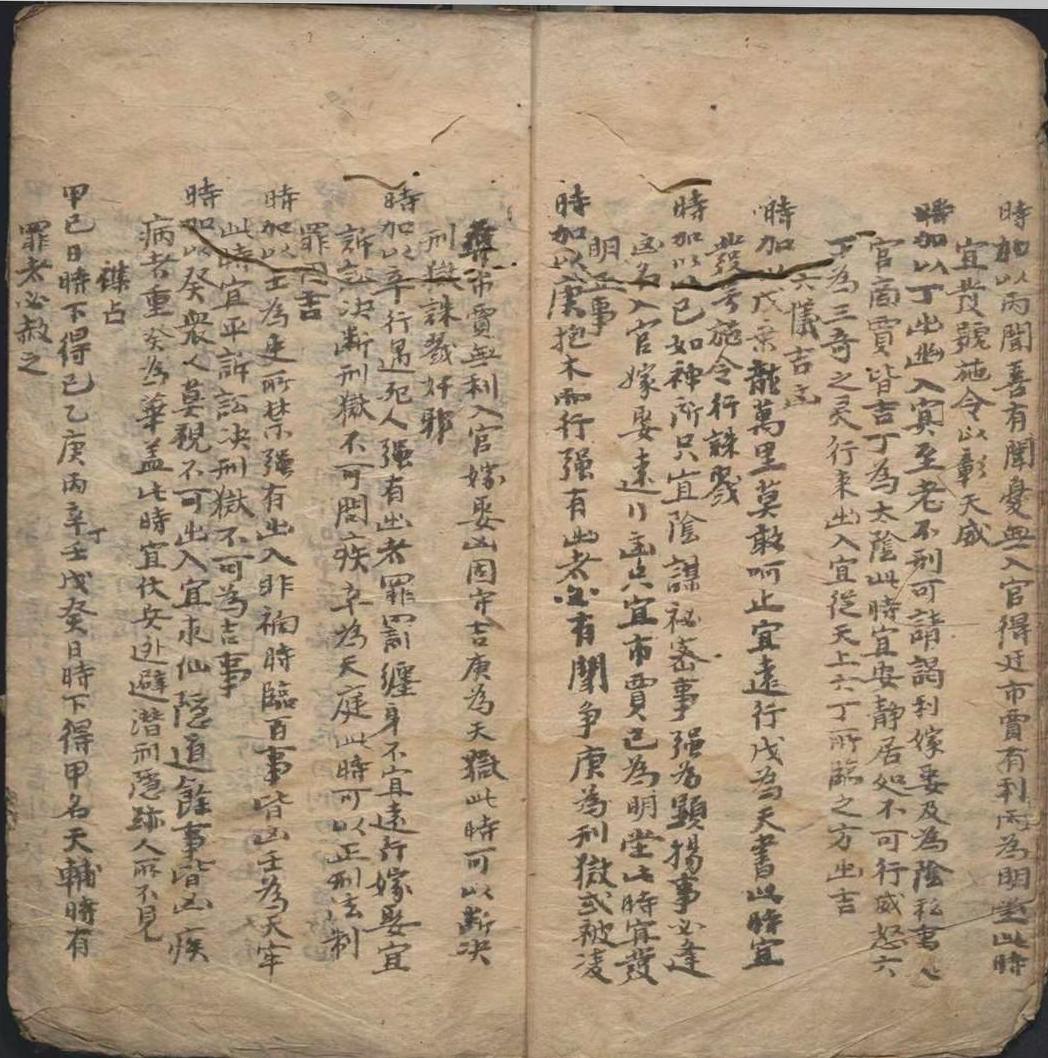 時加以丙聞喜有聞憂無入官得迁市賣有利丙為明堂此時
宜發號施令以彰天威
時加以丁出幽入冥至老不刑可請謁利嫁娶及為陰私書
官啇賣皆吉丁為太陰此時宜安静居処不可行威怒六
丁為三奇之灵行来出入宜從天上六丁所臨之方出吉
六儀吉凶
時加以戊乘龍萬里莫敢呵止宜遠行戊為天書此時宜
發号施令行誅戮
時加以己如神所只宜陰謀祕密事强為顯揚事必逢
凶入官嫁娶遠行凶只宜市賈己為明堂此時宜發
明正事
時加以庚抱木而行强有出者必有鬭争庚為刑獄或被凌
市賈無利入官嫁娶凶固守吉庚為天獄此時可以断决
刑獄誅戮奸邪
時加以辛行遇死人强有出者罪罰纏身不宜遠行嫁娶宜
訴訟决断刑獄不可問疾辛為天庭此時可以正刑法制
罪吉
時加以壬為吏所禁强有出入非禍時臨百事皆凶壬為天牢
此時宜平訴訟决刑獄不可為吉事
時加以癸衆人莫視不可出入宜求仙隠道餘事皆凶疾
病者重癸為華盖此時宜伏安逃避潜刑隠跡人所不見
襍占
甲己日時下得己乙庚丙辛丁壬戊癸日時下得甲名天輔時有
罪者必赦之